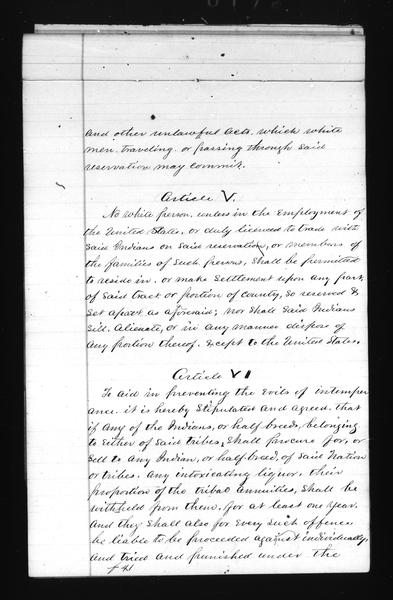 and other unlawful acts, which white
men traveling or passing through said
reservation may commit.
Article V.
No white person, unless in the Employment of
the United States, or duly licenced to trade with
said Indians on said reservation, or members of
the families of such persons, shall be permitted
to reside in, or make Settlement upon any part
of said tract or portion of country, so reserved &
set apart as aforesaid; nor shall said Indians
sell, Alienate, or in any manner dispose of
any portion thereof, Except to the United States.
Article VI
To aid in preventing the Evils of intemper
ance, it is hereby Stipulated and agreed, that
if any of the Indians, or half breeds, belonging
to Either of said tribes, shall procure for, or
sell to any Indian, or half breed, of said Nation
or tribes, any intoxicating liquor, their
proportion of the tribal annuities, shall be
withheld from them, for at least one year.
And they shall also for Every such offence
be liable to be proceeded against individually,
and tried and punished under the